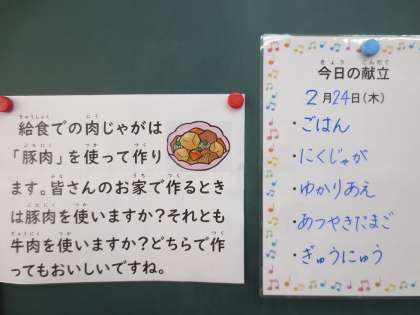 給食での肉じゃがは
「豚肉」を使って作り
ます。皆さんのお家で作るとき
は豚肉を使いますか？それとも
牛肉を使いますか？どちらで作
ってもおいしいですね。
今日の献立
2月24日(木)
・ごはん
・にくじゃが
・ゆかりあえ
・あつやきたまご
・ぎゅうにゅう